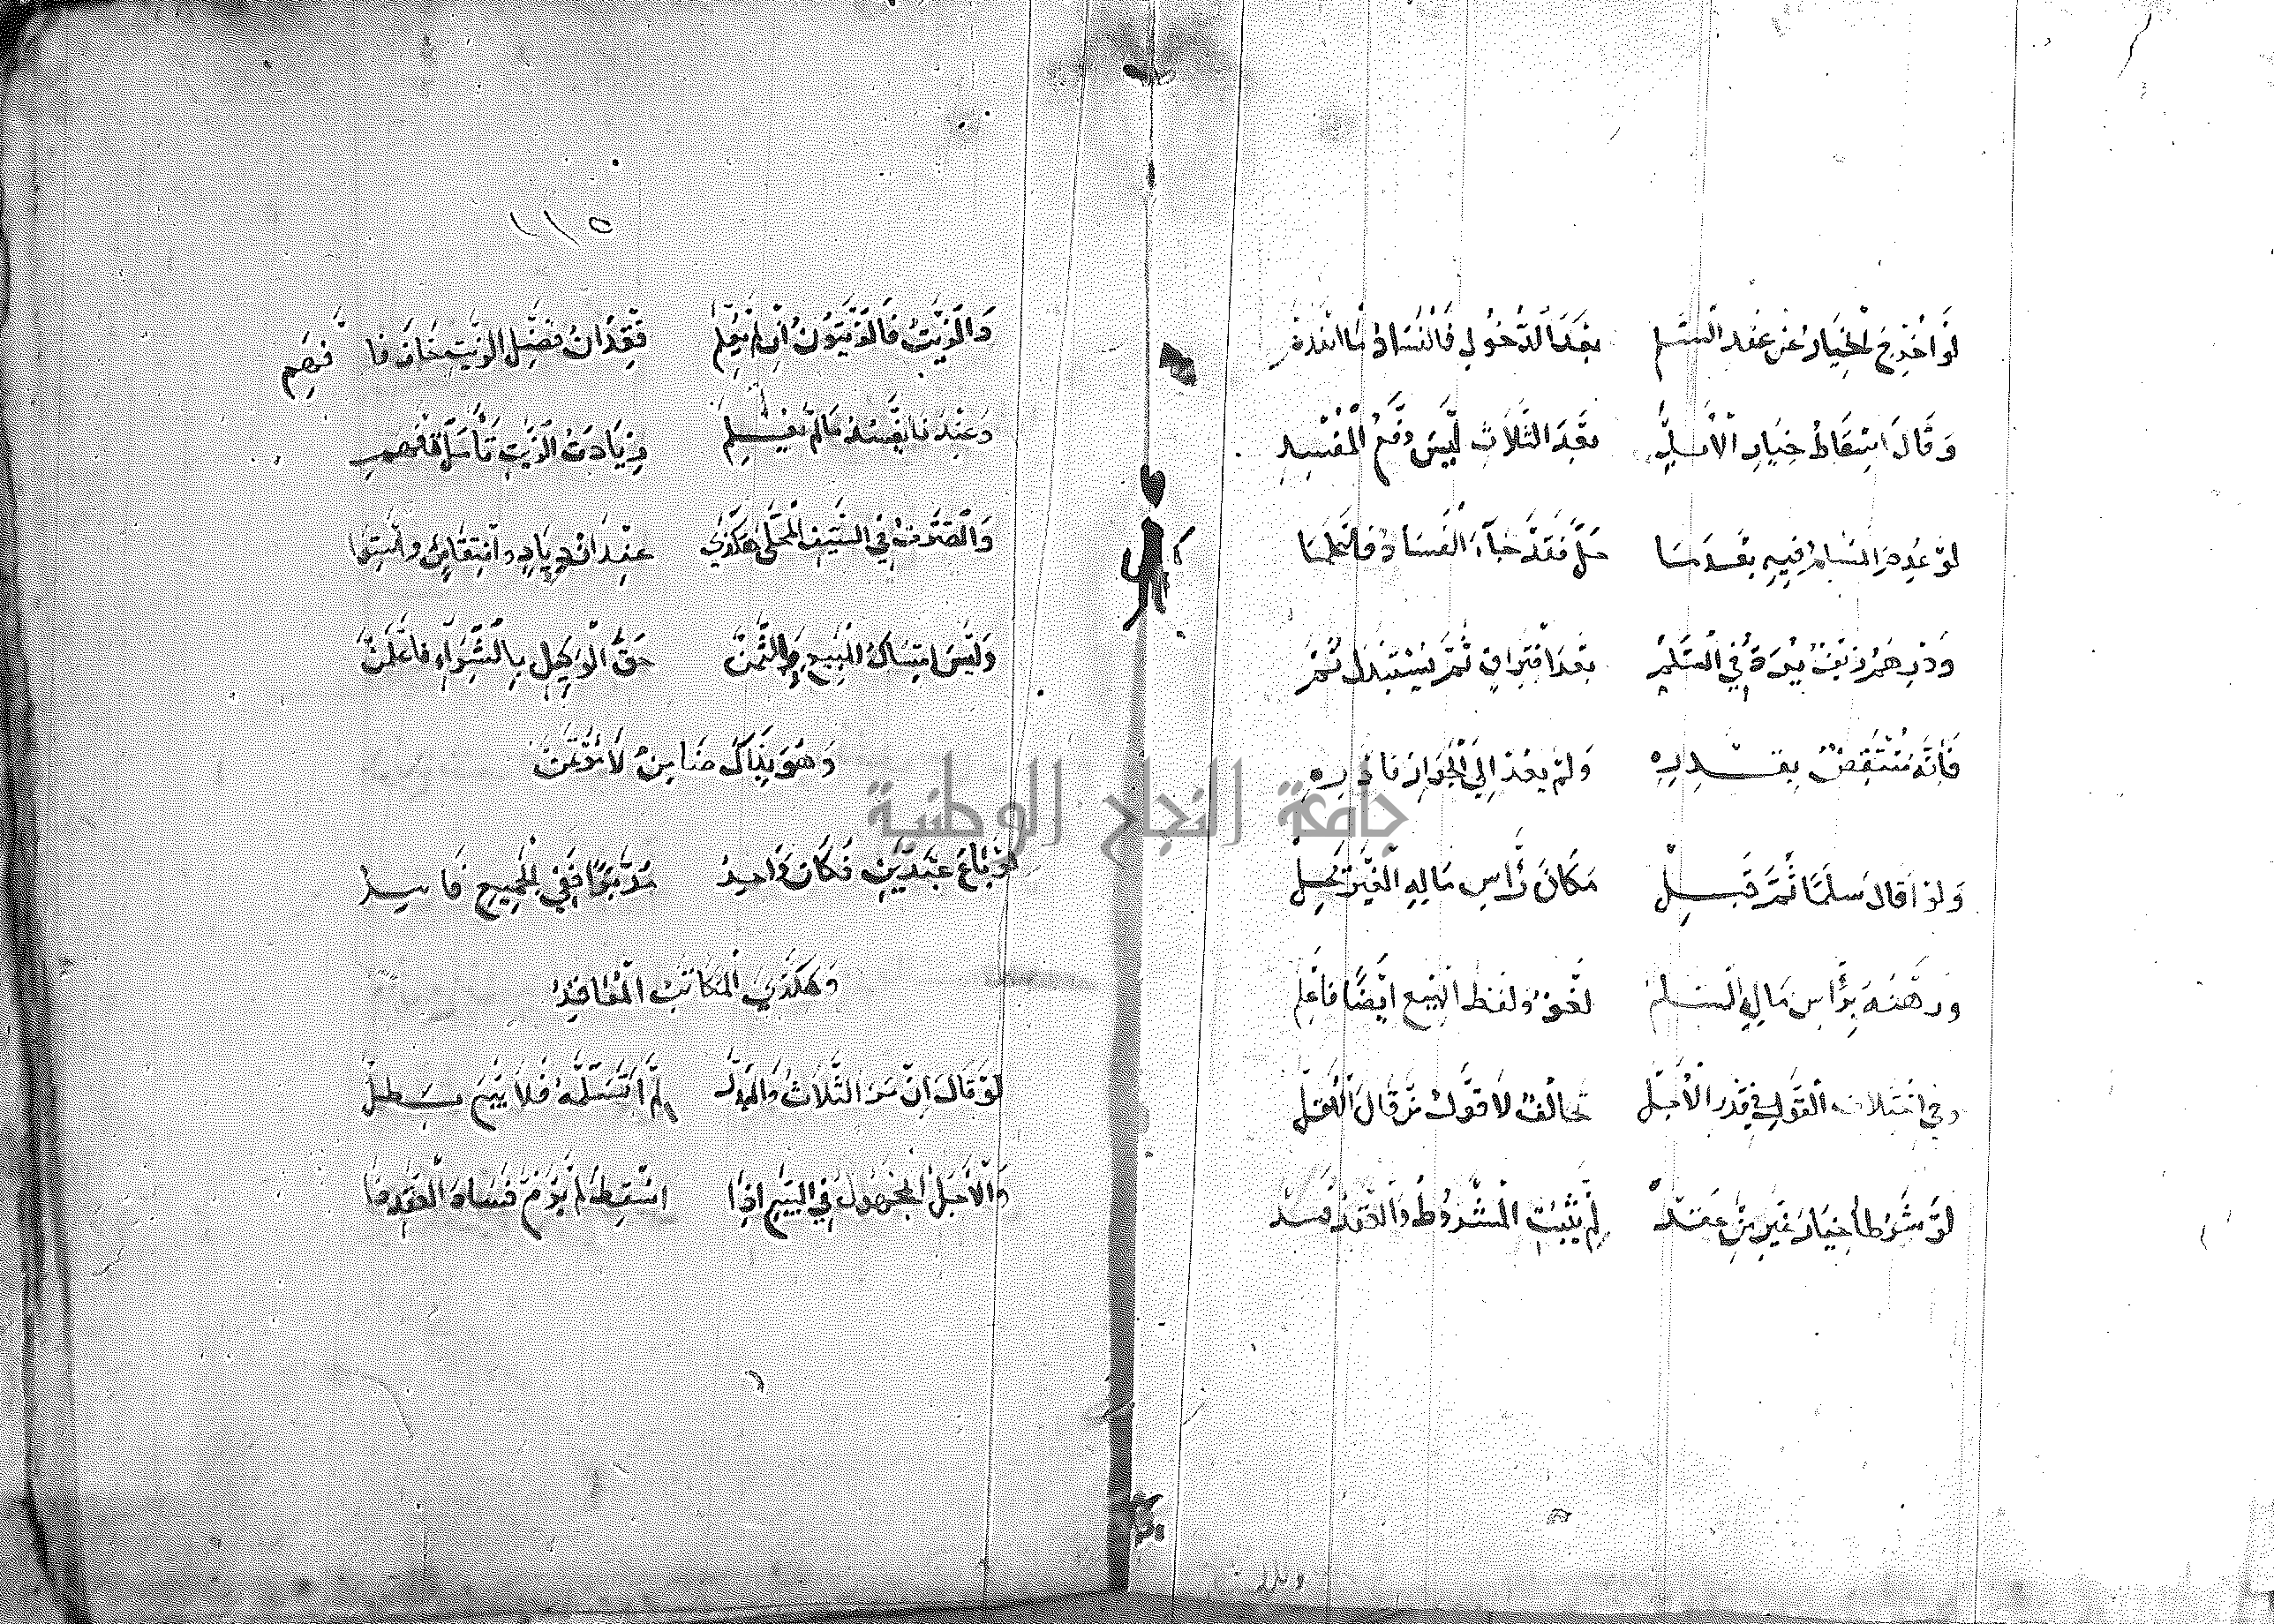 لَوْ أَخْرَجَ الْخِيَارَ عَنْ عَقْدِ السَّلَمِ بَعْدَ الدُّخُولِ فَالْفَسَادُ مَا انْعَدَمْ
وَقَالَ اسْقَاطُ خِيَارِ الْأَبَدِ بَعْدَ الثَّلَاثِ لَيْسَ رَفْعَ الْمُفْسِدِ
لَوْ عُدِمَ الْمُسْلَمُ فِيهِ بَعْدَمَا حَلَّ فَقَدْ جَاءَ الْفَسَادُ
وَدِرْهَمٌ زَيْفٌ يُرَدُّ فِي السَّلَمْ بَعْدَ افْتِرَاقٍ ثُمَّ يُسْتَبْدَلُ ثُمَّ
فَإِنَّهُ مُنْتَقِضٌ بِقَدْرِهِ وَلَمْ يَعُدْ إِلَى الْجَوَازِ فَادْرِهِ
وَلَوْ أَقَالَ سَلَمًا ثُمَّ قَبِلْ مَكَانَ رَأْسِ مَالِهِ الْغَيْرَ يَحِلْ
وَرَهْنُهُ بِرَأْسِ مَالِ السَّلَمِ لَغْوٌ وَلَفْظُ الْبَيْعِ أَيْضًا فَاعْلَمِ
وَفِي اخْتِلَافِ الْقَوْلِ فِي قَدْرِ الْأَجَلْ تَحَالُفٌ لَا قَوْلُ مَنْ قَالَ الْأَقَلْ
لَوْ شَرَطَا خِيَارَ غَيْرِ مَنْ عَقَدْ لَمْ يَثْبُتِ الْمَشْرُوطُ وَالْعَقْدُ فَسَدْ
١١٥
وَالزَّيْتُ فَالزَّيْتُونُ إِنْ لَمْ يُعْلَمِ فَقْدَانُ فَضْلِ الزَّيْتِ جَازَ فَافْهَمِ
وَعِنْدَنَا يُفْسِدُ مَا لَمْ يُعْلَمِ زِيَادَةُ الزَّيْتِ تَأَمَّلْ
وَالصَّرْفُ فِي السَّيْفِ الْمُحَلَّى هَكَذَى عِنْدَ ازْدِيَادٍ وَانْتِقَاصٍ
وَلَيْسَ امْسَاكُ الْمَبِيعِ وَالثَّمَنْ حَقُّ الْوَكِيلِ بِالشِّرَاءِ فَاعْلَمَنْ
وَهُوَ بِذَاكَ ضَامِنٌ لَا مُؤْتَمَنْ
لَوْ بَاعَ عَبْدَيْنِ فَكَانَ وَاحِدُ مُدَبَّرًا فَفِي الْجَمِيعِ فَاسِدُ
وَهَكَذَى الْمُكَاتَبُ الْمُعَاقَدُ
لَوْ قَالَ إِنْ مَرَّ الثَّلَاثُ لَمْ أَسْتَلِمْهُ فَلَا بَيْعَ بَطَلْ
وَالْأَجَلُ الْمَجْهُولُ فِي الْبَيْعِ إِذَا أُسْقِطَ لَمْ يَرْفَعْ فَسَادَ الْعَقْدِ
جامعة النجاح الوطنية